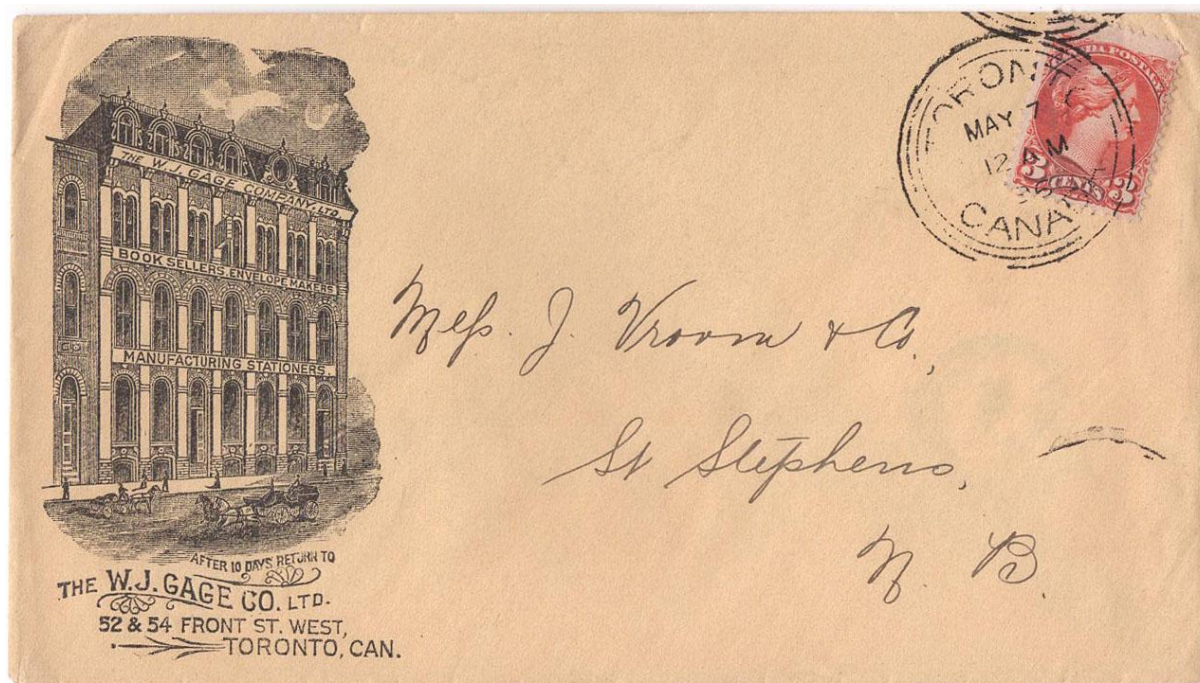 THE W. J. GAGE COMPANY, LTD.
BOOK SELLERS, ENVELOPE MAKERS
MANUFACTURING STATIONERS.
AFTER 10 DAYS RETURN TO
THE W.J. GAGE CO. LTD.
52 & 54 FRONT ST. WEST,
TORONTO, CAN.
TORONTO
MAY 7
12 PM
CANADA
DA POSTAGE
3 CENTS 3
Mess. J. Vroom & Co,
St Stephens,
N. B.